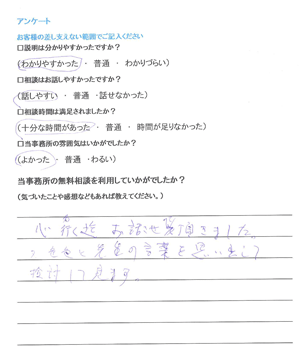 アンケート
お客様の差し支えない範囲でご記入ください
□説明は分かりやすかったですか？
（わかりやすかった ・ 普通 ・ わかりづらい）
□相談はお話しやすかったですか？
（話しやすい ・ 普通 ・話せなかった）
□相談時間は満足されましたか？
（十分な時間があった ・ 普通 ・ 時間が足りなかった）
□当事務所の雰囲気はいかがでしたか？
（よかった ・ 普通 ・わるい）
当事務所の無料相談を利用していかがでしたか？
（気づいたことや感想などもあれば教えてください。）
心行く迄 お話させ頂きました。
と先生の言葉を思い出して
検討して見ます。